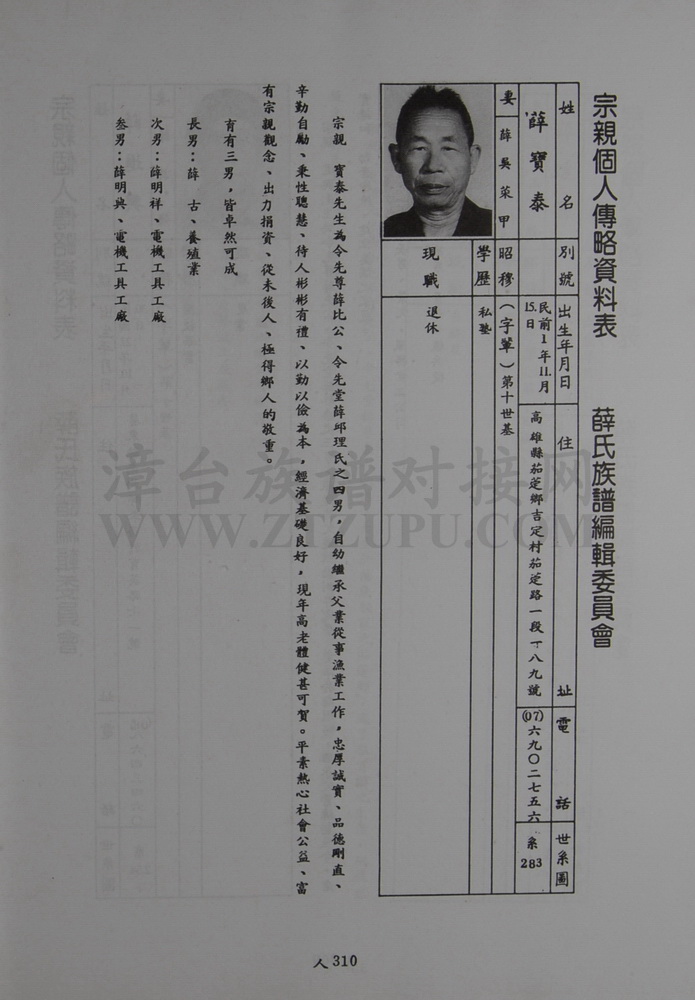 宗親個人傳略資料表　薛氏族譜編輯委員會
姓名　別號　出生年月日　住址　電話　世系圖
薛寶泰　民前1年11月15.日　高雄縣茄萣鄉吉定村茄萣路一段一八九號　(07)六九〇二七五六　系283
妻　薛吳菜甲　昭穆　(字輩)第十世基
學歷　私塾
現職　退休
宗親　寶泰先生為令先尊薛比公、令先堂薛邱理氏之四男，自幼繼承父業從事漁業工作，忠厚誠實、品德剛直、
辛勤自勵、秉性聰慧、待人彬彬有禮、以勤以儉為本，經濟基礎良好，現年高老體健甚可賀。平素熱心社會公益、富
有宗親觀念、出力捐資、從未後人、極得鄉人的敬重。
育有三男，皆卓然可成
長男：薛　古、養殖業
次男：薛明祥、電機工具工廠
叁男：薛明興、電機工具工廠
人310
漳台族谱对接网
WWW.ZTZUPU.COM